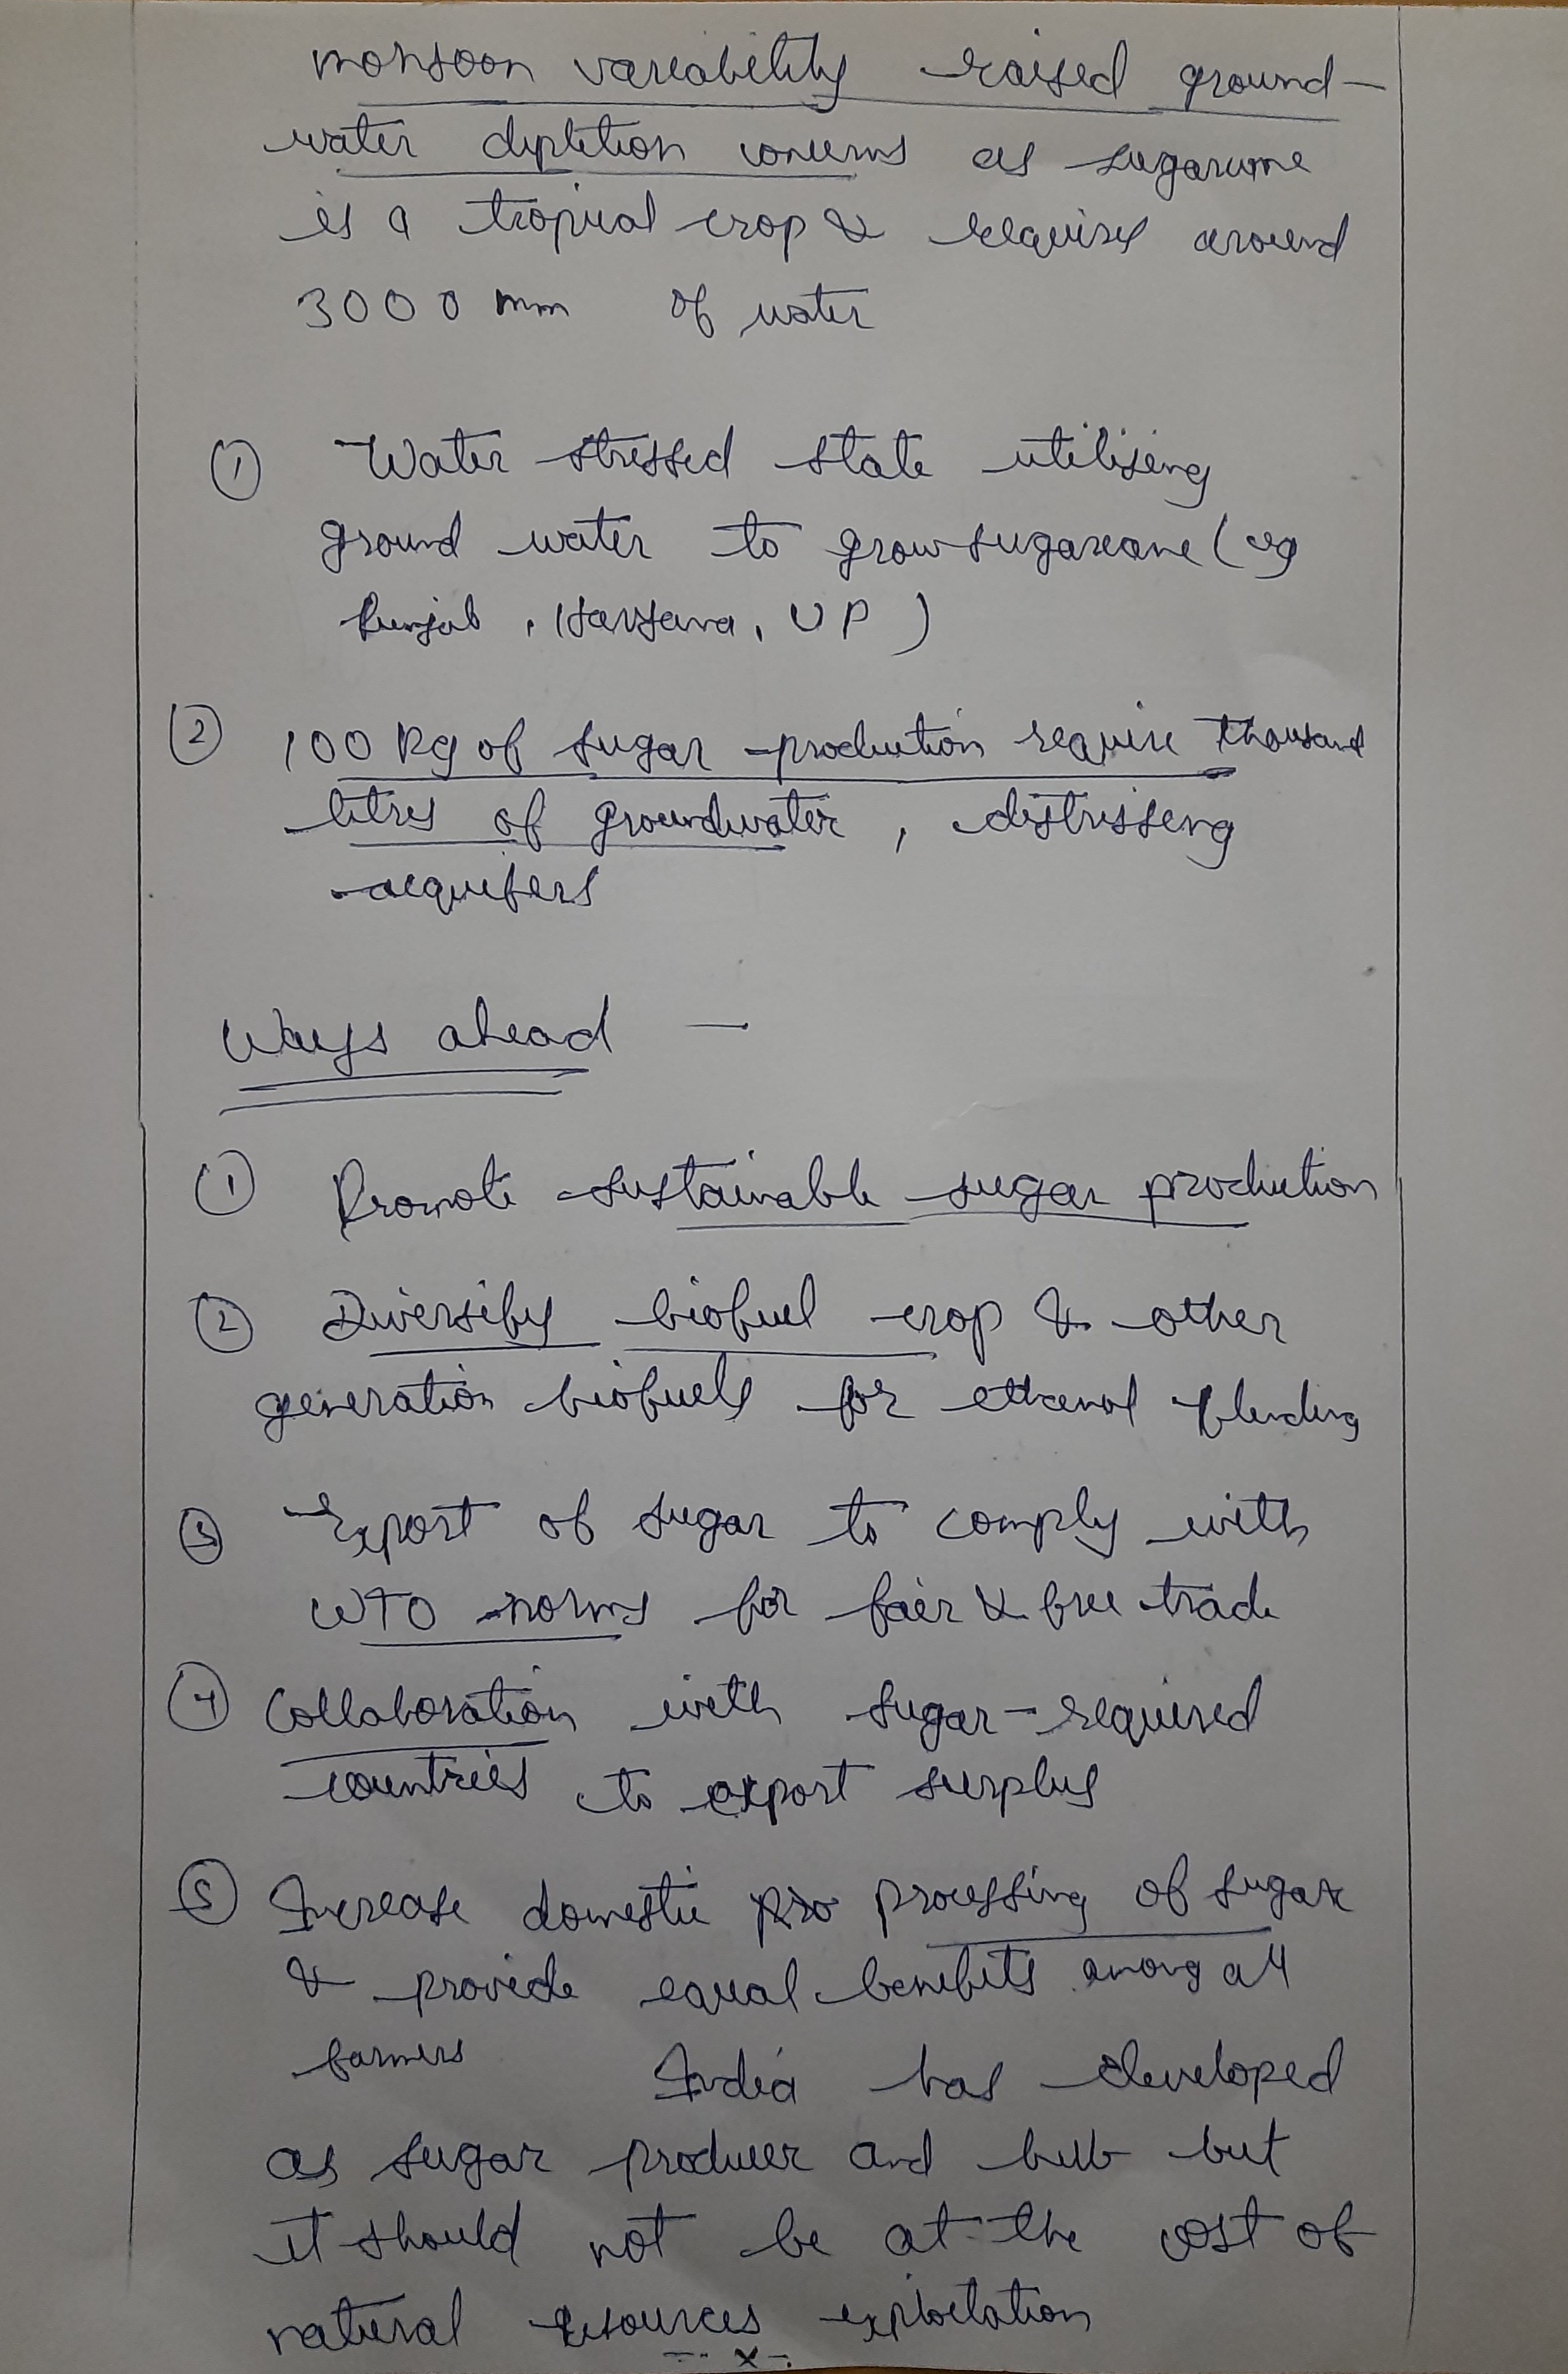 monsoon variability raised ground-
water depletion concerns as sugarcane
is a tropical crop & requires around
3000 mm of water
① Water stressed state utilising
ground water to grow sugarcane (eg
Punjab, Haryana, UP)
② 100 Kg of sugar production require thousand
litres of groundwater, distressing
acquifers
Ways ahead —
① Promote sustainable sugar production
② Diversify biofuel crop & other
generation biofuels for ethanol blending
③ Export of sugar to comply with
WTO norms for fair & free trade
④ Collaboration with sugar-required
countries to export surplus
⑤ Increase domestic pro processing of sugar
& provide equal benefits among all
farmers India has developed
as sugar producer and hub but
it should not be at the cost of
natural resources exploitation
-- x --